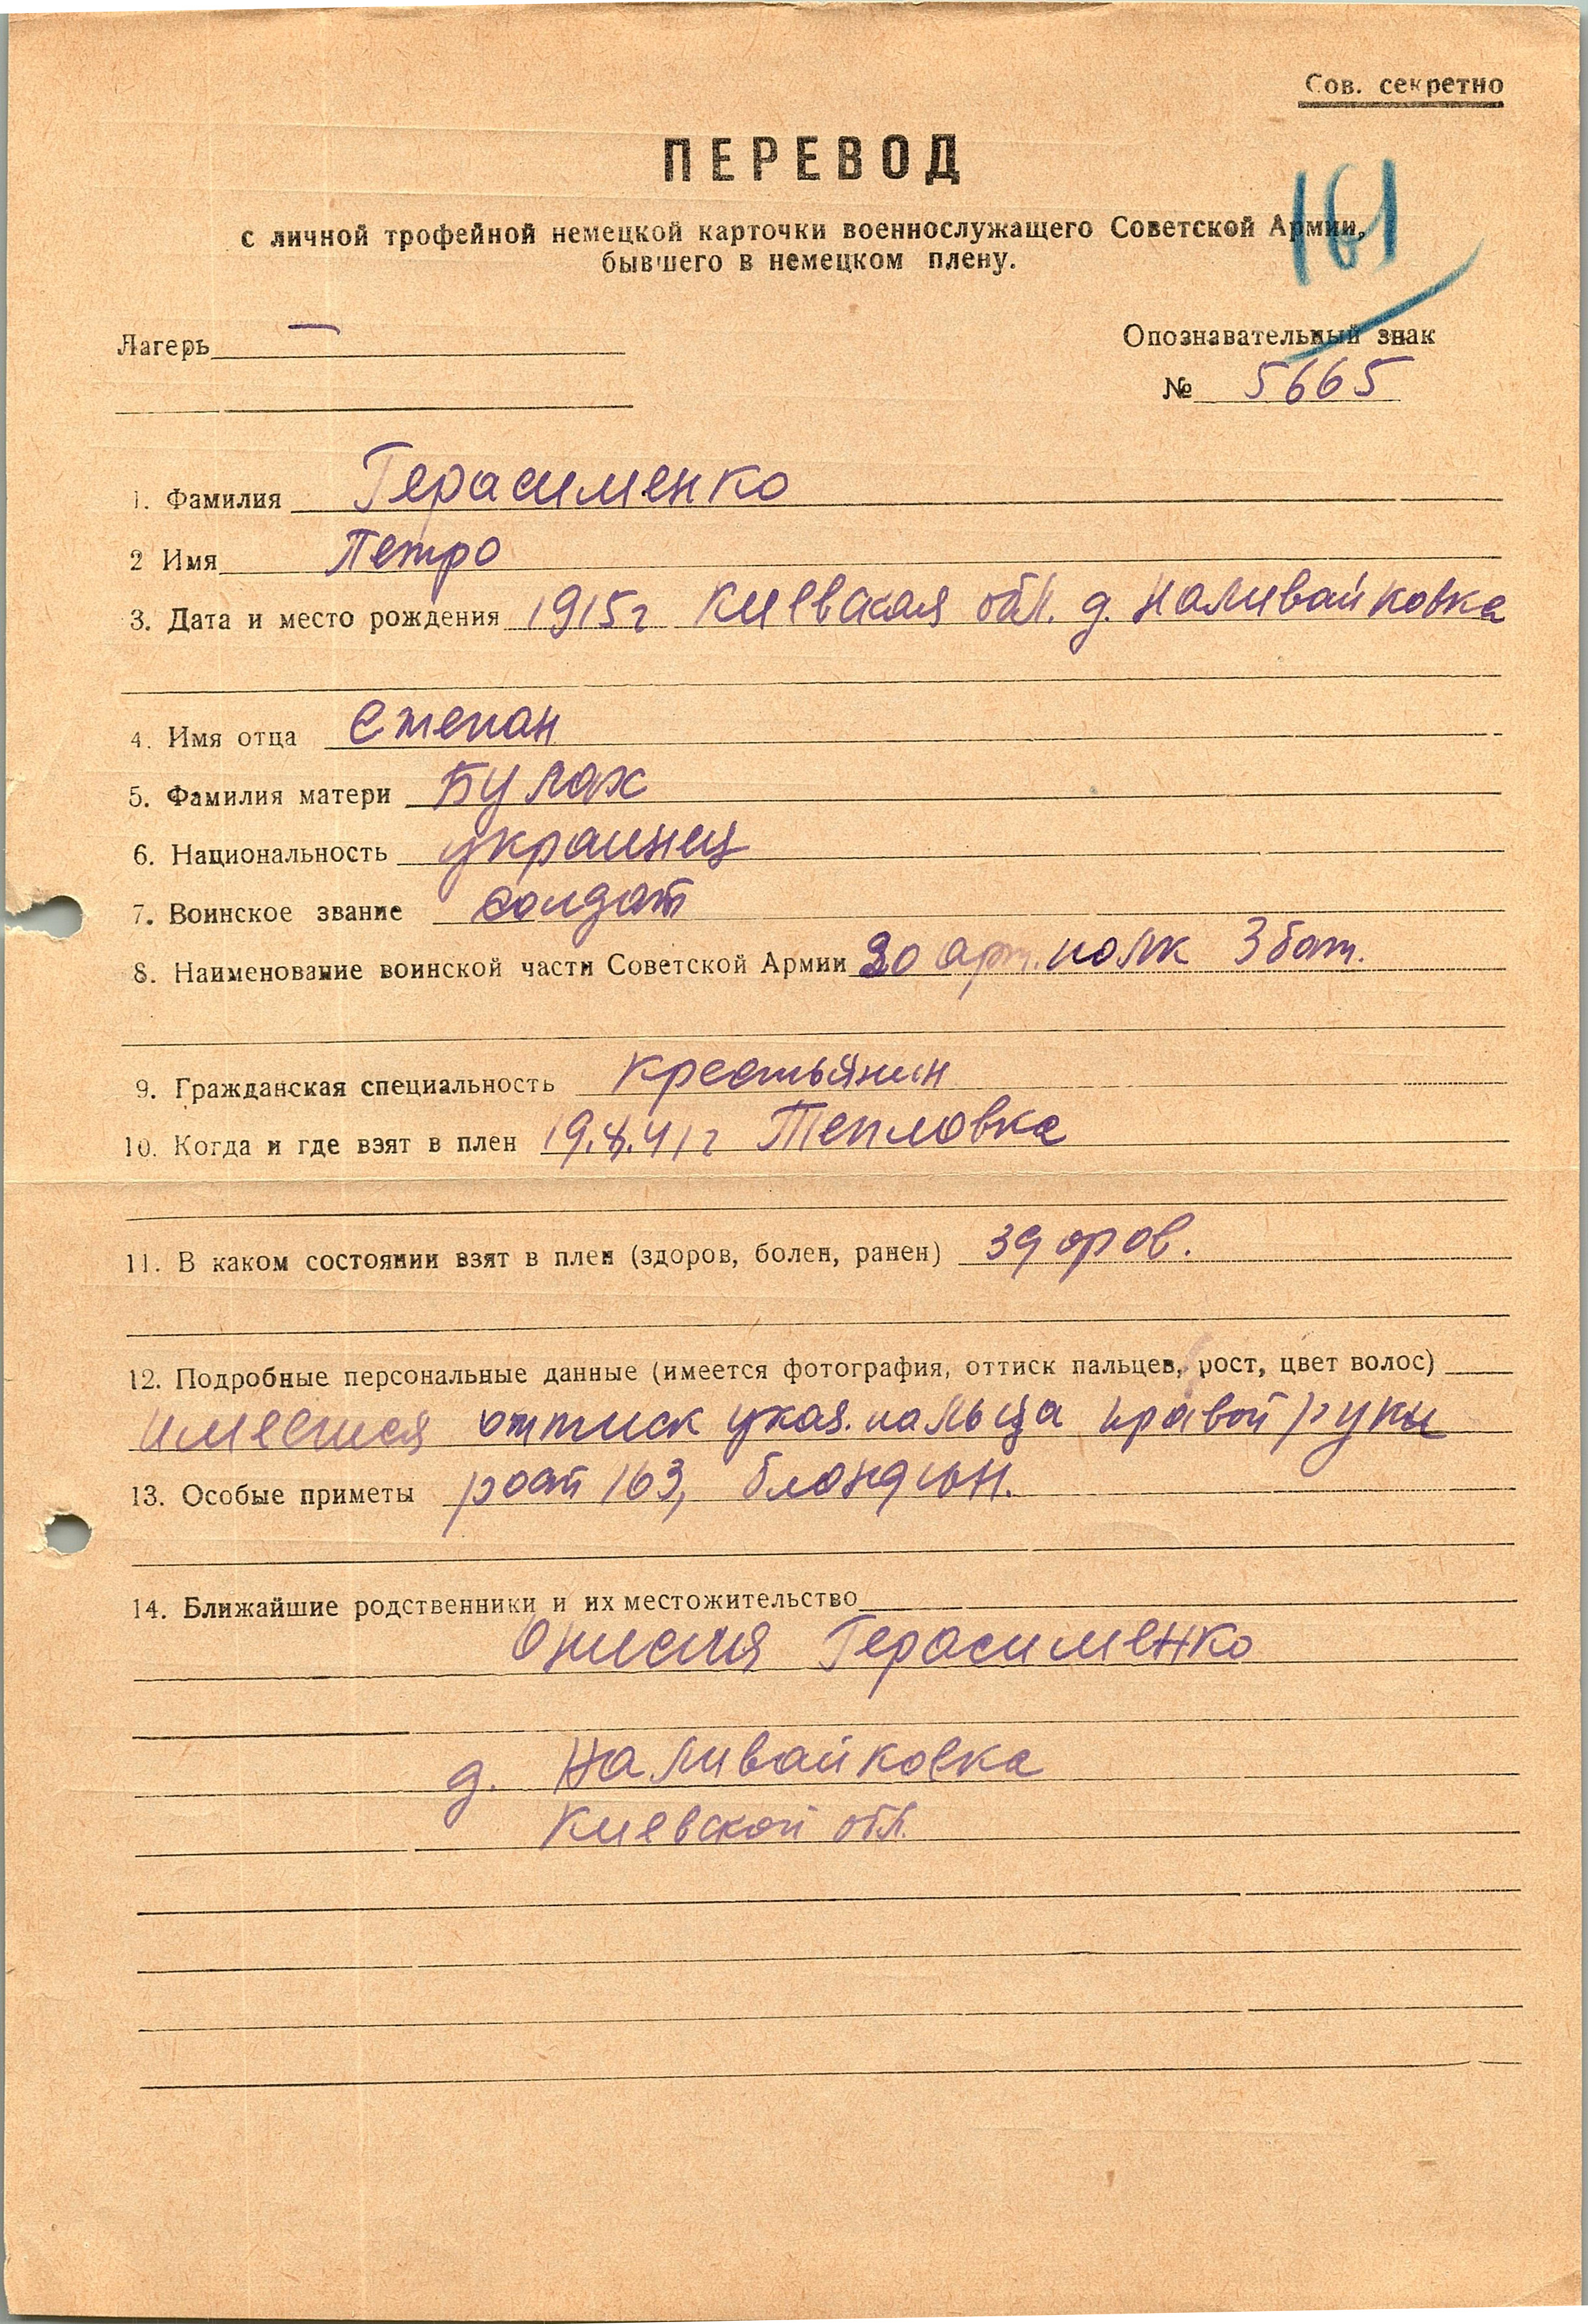 Сов. секретно
ПЕРЕВОД
161
с личной трофейной немецкой карточки военнослужащего Советской Армии,
бывшего в немецком плену.
Лагерь —
Опознавательный знак
№ 5665
1. Фамилия Герасименко
2 Имя Петро
3. Дата и место рождения 1915г Киевская обл. д. Наливайковка
4. Имя отца Степан
5. Фамилия матери Булах
6. Национальность украинец
7. Воинское звание солдат
8. Наименование воинской части Советской Армии 20 арт. полк 3 бат.
9. Гражданская специальность крестьянин
10. Когда и где взят в плен 19.8.41г Тепловка
11. В каком состоянии взят в плен (здоров, болен, ранен) здоров.
12. Подробные персональные данные (имеется фотография, оттиск пальцев, рост, цвет волос)
имеется оттиск указ. пальца правой руки
13. Особые приметы рост 163, блондин.
14. Ближайшие родственники и их местожительство
Герасименко
д. Наливайковка
Киевской обл.